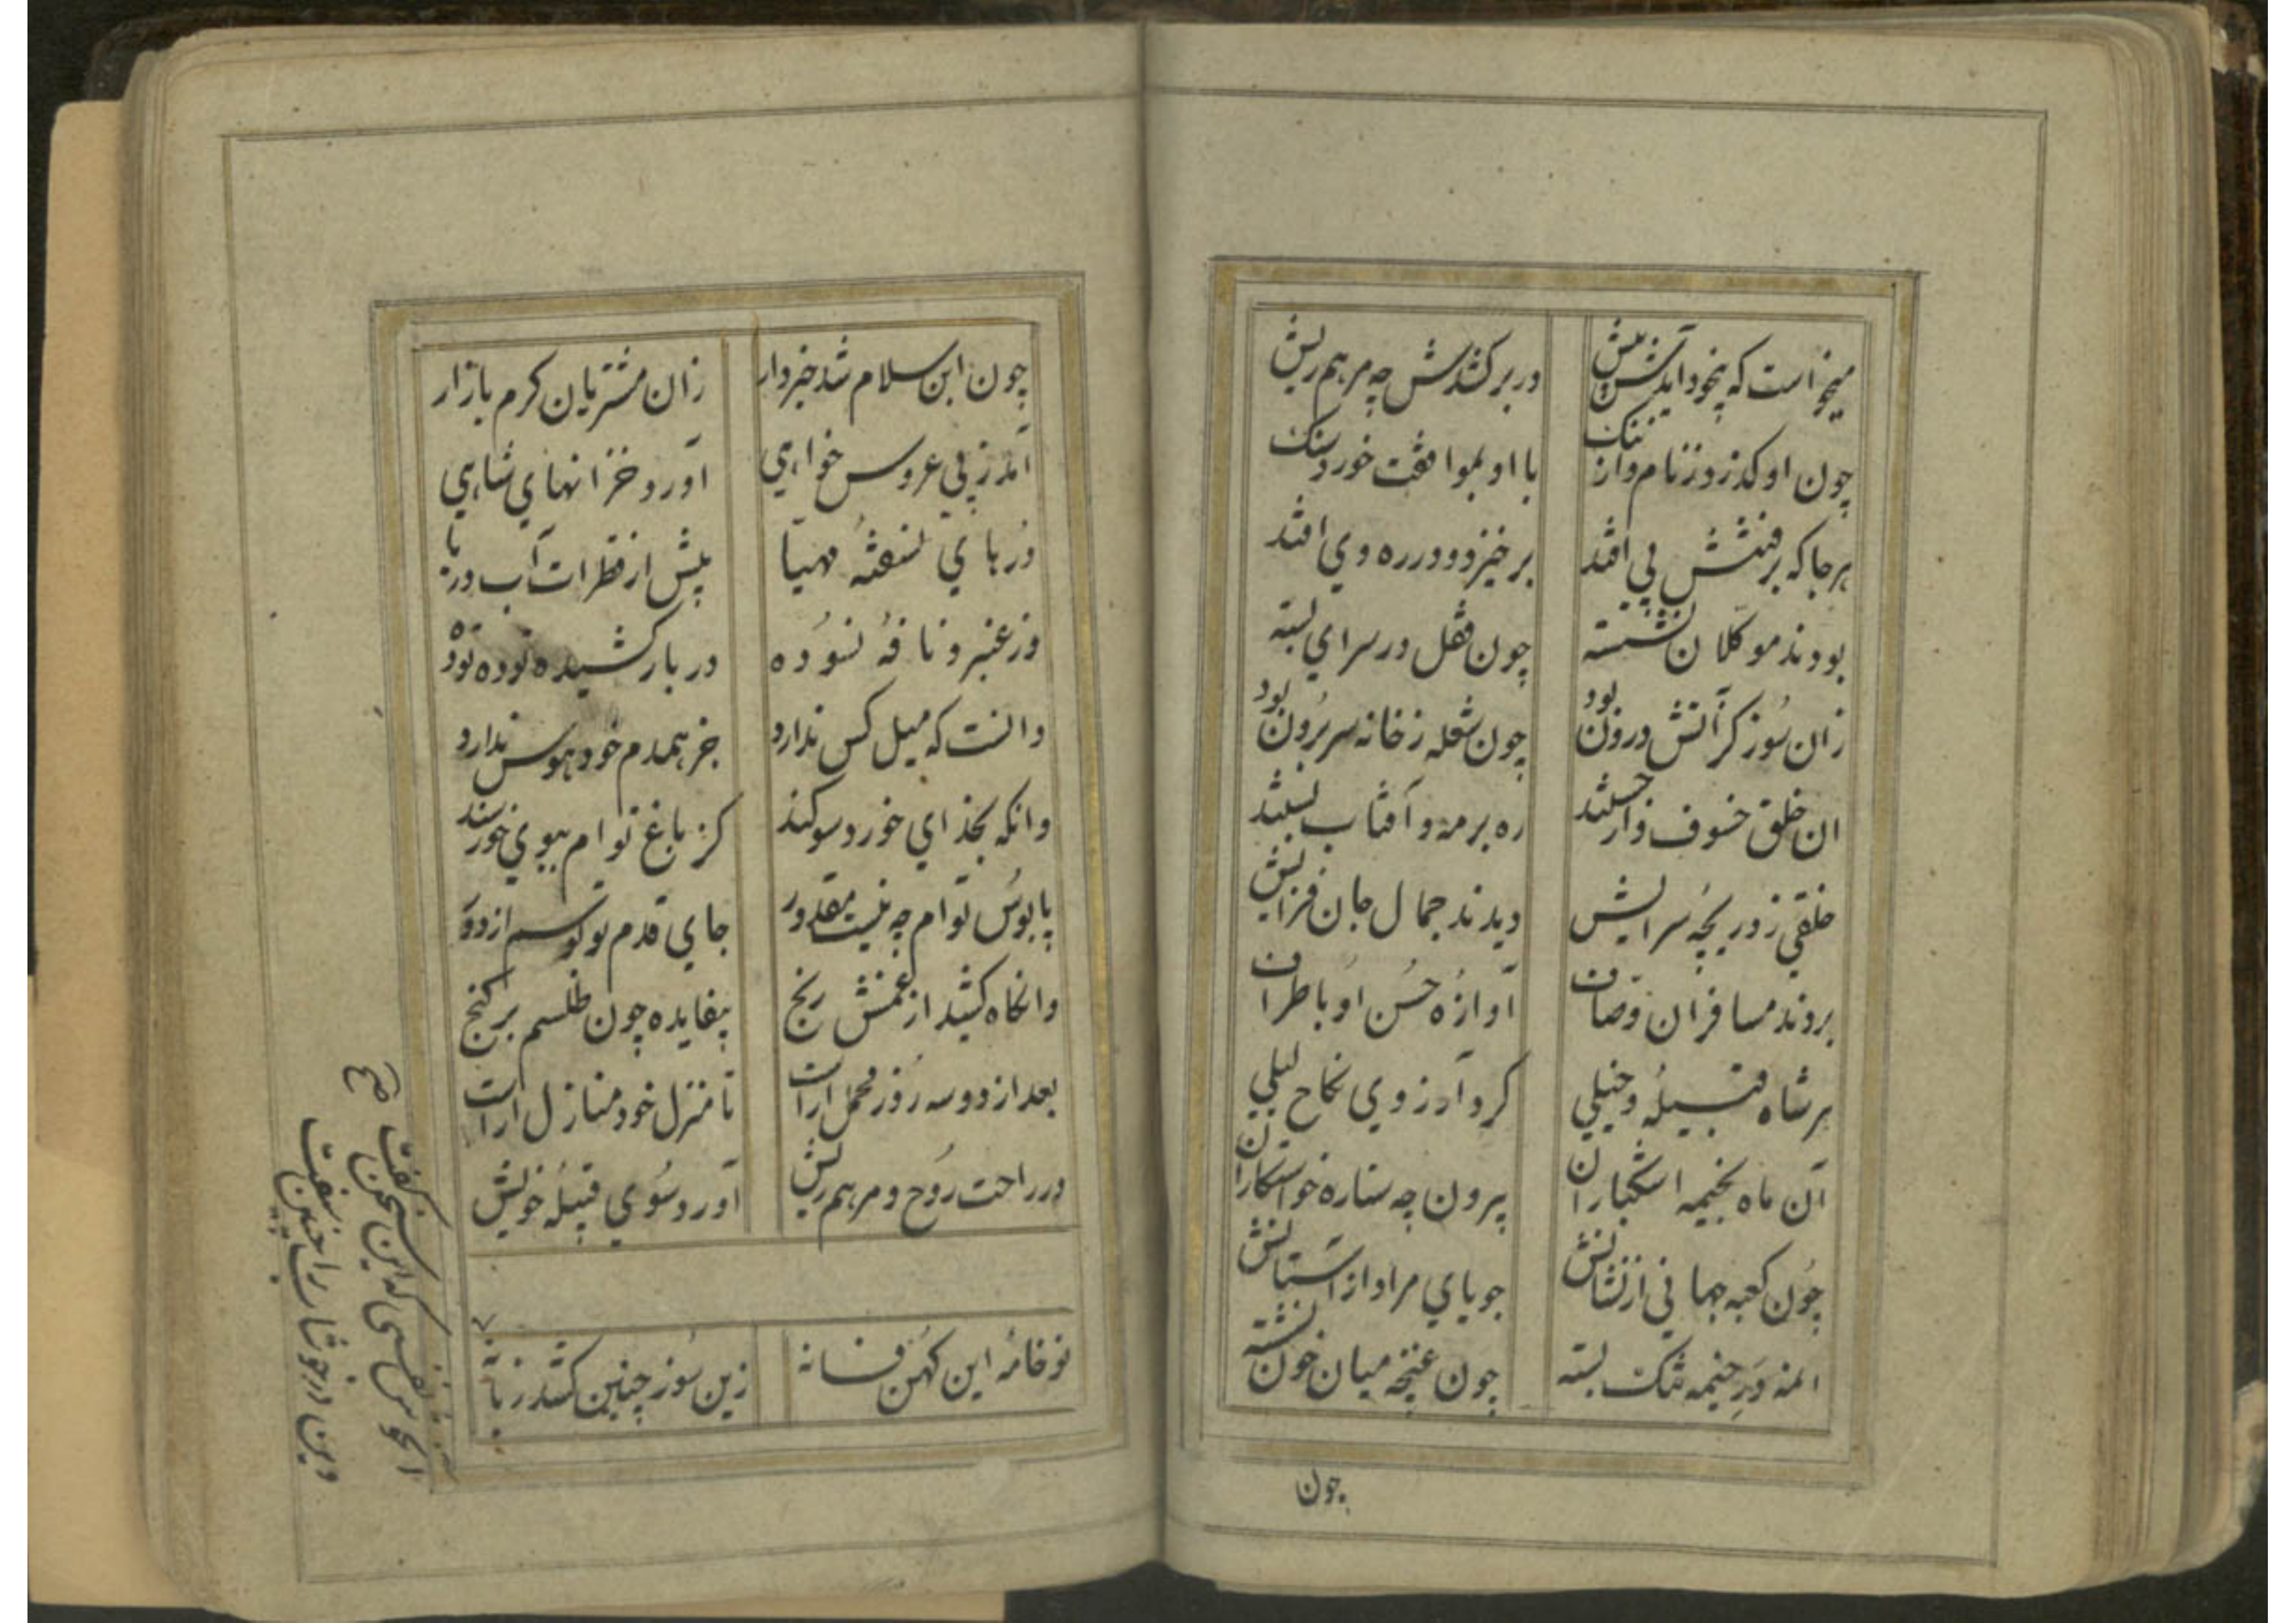 میخواست که بیخود آیدش پیش در بر کشدش چه مرهم ریش
چون او گذرد ز نام و از ننک با او بموافقت خورد سنک
هرجا که برفتنش پی افتد برخیزد و در ره وی افتد
بودند موکلان نشسته چون قفل در سرای بسته
زان سوز کز آتش درون بود چون شعله ز خانه سر برون بود
ان خلق خسوف وار جستند ره بر مه و آفتاب بستند
خلقی ز دریچه سرایش دیدند جمال جان فزایش
بردند مسافران وصاف آوازه حسن او باطراف
هر شاه قبیله و خیلی کرد آرزوی نکاح لیلی
آن ماه بخیمه اشکباران بیرون چه ستاره خواستکاران
چون کعبه جهانی از نشانش جویای مراد از آستانش
المنه در خیمه تنک بسته چون غنچه میان خون نشسته
چون
چون ابن سلام شد خبردار زان مشتریان کرم بازار
آمد ز پی عروس خواهی آورد خزانهای شاهی
درهای نسفته مهیا بیش از قطرات آب دریا
وز عنبر و نافه نسوده در بار کشیده توده توده
دانست که میل کس ندارد جز همدم خود هوس ندارد
وانکه بخدای خورد سوکند کز باغ توام ببوی خورسند
پابوس توام چه نیست مقدور جای قدم تو بوسم از دور
وانکاه کشید از غمش رنج بیفایده چون طلسم بر کنج
بعد از دو سه روز محمل اراست تا منزل خود منازل اراست
در راحت روح و مرهم ریش آورد سوی قبیله خویش
نوخامه این کهن فسانه زین سوز چنین کشد زبانه
صح
که این سخن کفت
را چنین سفت